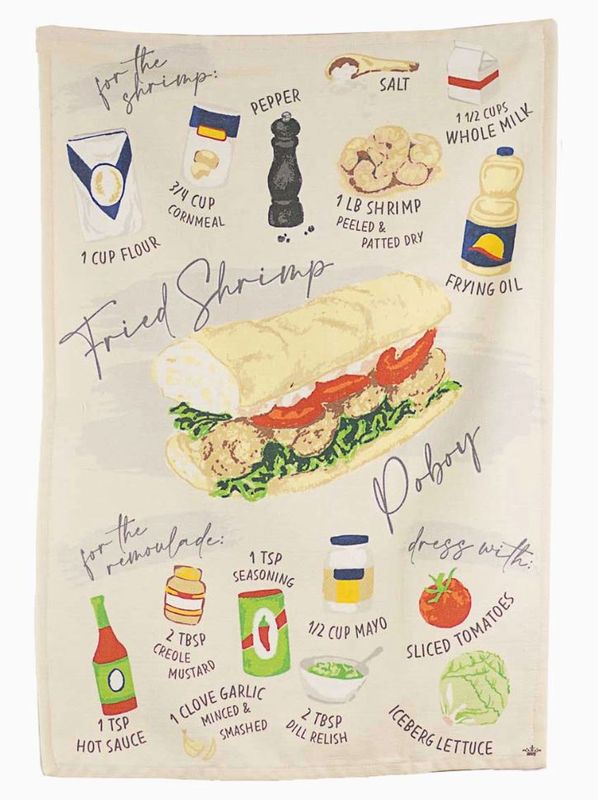 for the
shrimp:
PEPPER
SALT
1 1/2 CUPS
WHOLE MILK
3/4 CUP
CORNMEAL
1 LB SHRIMP
PEELED &
PATTED DRY
1 CUP FLOUR
FRYING OIL
Fried Shrimp
Poboy
for the
remoulade:
dress with:
1 TSP
SEASONING
2 TBSP
CREOLE
MUSTARD
1/2 CUP MAYO
SLICED TOMATOES
1 TSP
HOT SAUCE
1 CLOVE GARLIC
MINCED &
SMASHED
2 TBSP
DILL RELISH
ICEBERG LETTUCE